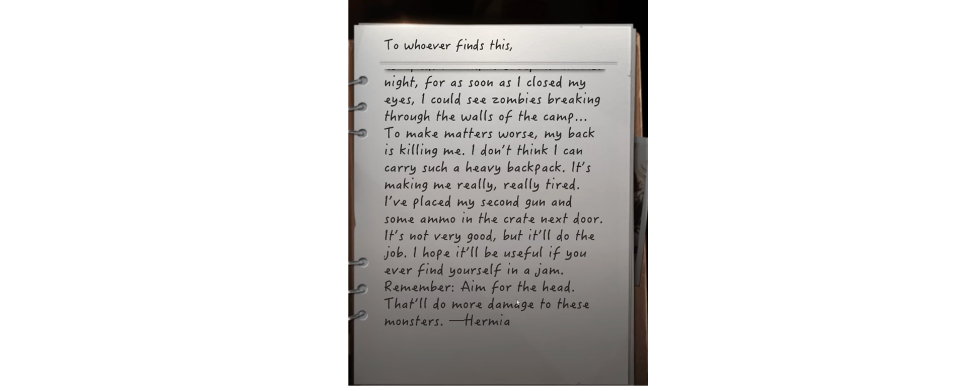 To whoever finds this,
night, for as soon as I closed my
eyes, I could see zombies breaking
through the walls of the camp...
To make matters worse, my back
is killing me. I don't think I can
carry such a heavy backpack. It's
making me really, really tired.
I've placed my second gun and
some ammo in the crate next door.
It's not very good, but it'll do the
job. I hope it'll be useful if you
ever find yourself in a jam.
Remember: Aim for the head.
That'll do more damage to these
monsters. —Hermia